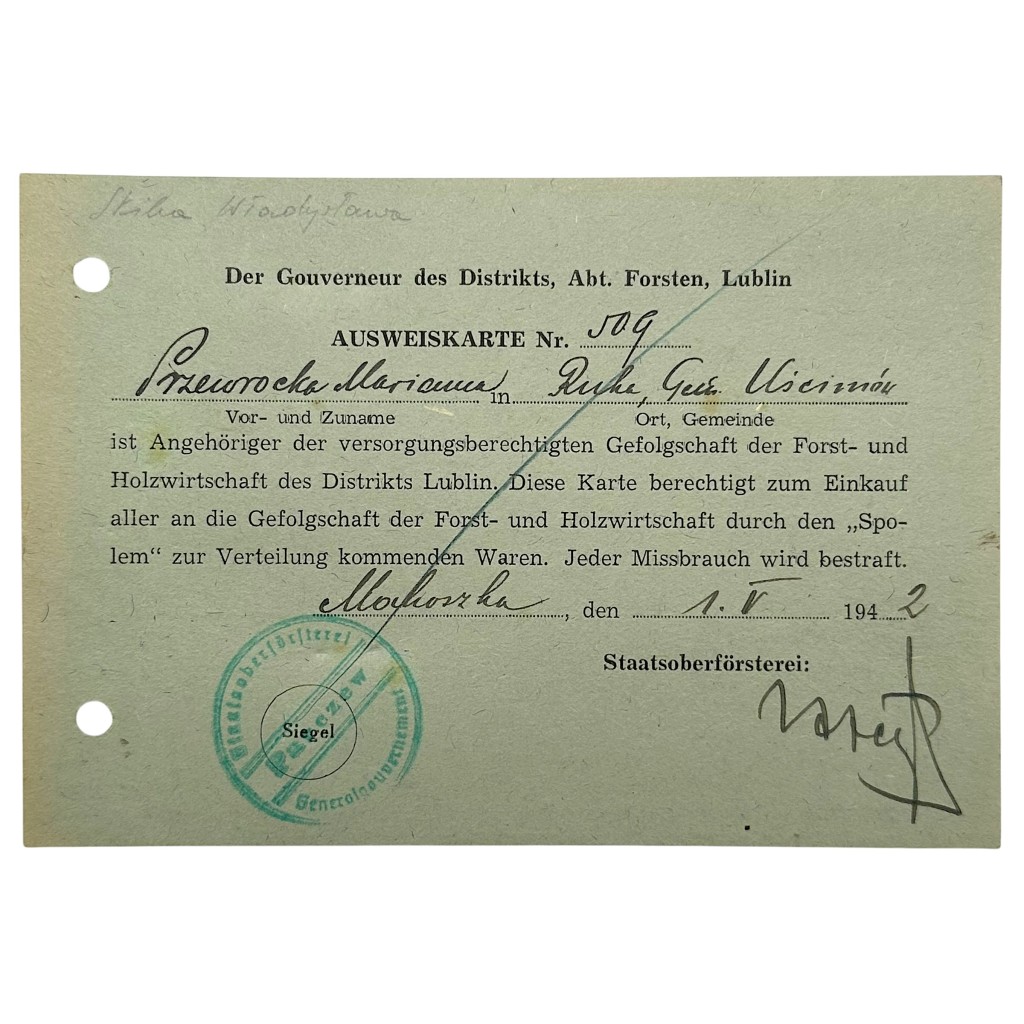 Władysława
Der Gouverneur des Distrikts, Abt. Forsten, Lublin
AUSWEISKARTE Nr. 509
Przewrocka Marianna in Ruka, Gem. Uścimów
Vor- und Zuname Ort, Gemeinde
ist Angehöriger der versorgungsberechtigten Gefolgschaft der Forst- und
Holzwirtschaft des Distrikts Lublin. Diese Karte berechtigt zum Einkauf
aller an die Gefolgschaft der Forst- und Holzwirtschaft durch den „Spo-
lem“ zur Verteilung kommenden Waren. Jeder Missbrauch wird bestraft.
Makoszka, den 1. V 1942
Staatsoberförsterei:
Staatsoberförsterei
Parczew
Siegel
Generalgouvernement